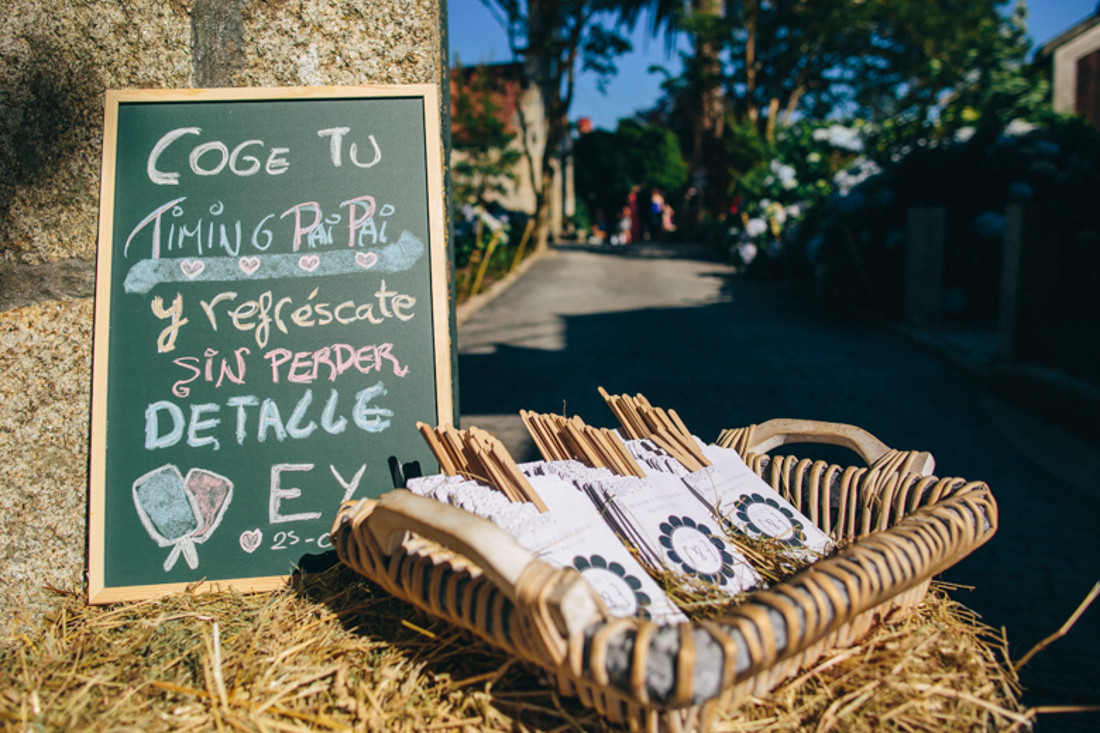 COGE TU
TIMING PAI PAI
y refréscate
SIN PERDER
DETALLE
E Y
25-